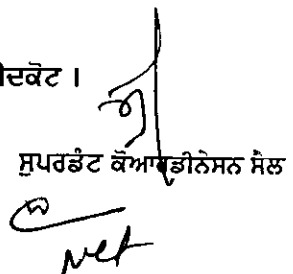 ਦਕੋਟ ।
ਸੁਪਰਡੰਟ ਕੋਆਰਡੀਨੇਸਨ ਸੈਲ